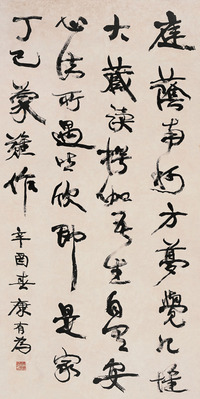 庭蔭南柯方夢覺
大藏读楞伽吾生自安
心法所遇皆欣即是家
丁巳蒙難作
辛酉春康有為